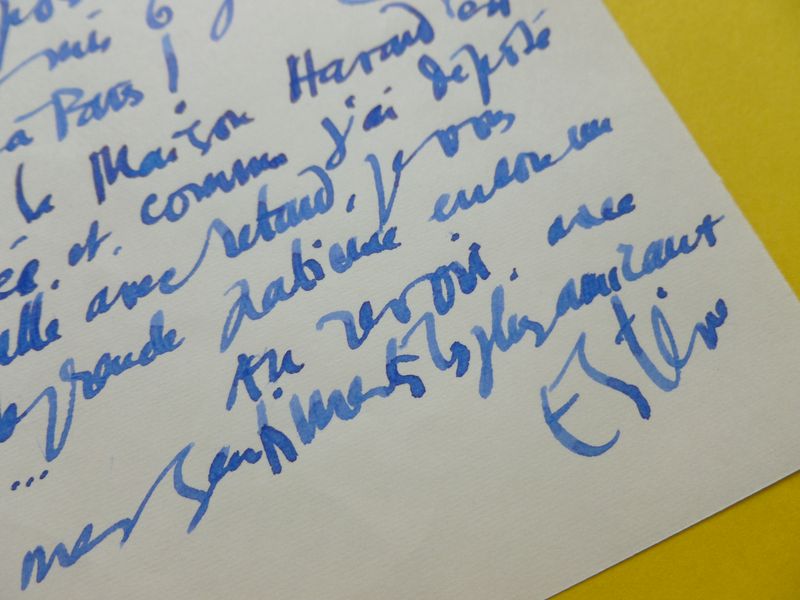 à Paris !
la Maison Havard en
ée, et, comme j'ai déposé
elle avec retard, je vous
grande patience encore un
...
Au revoir, avec
mes sentiments les plus amicaux
Estève